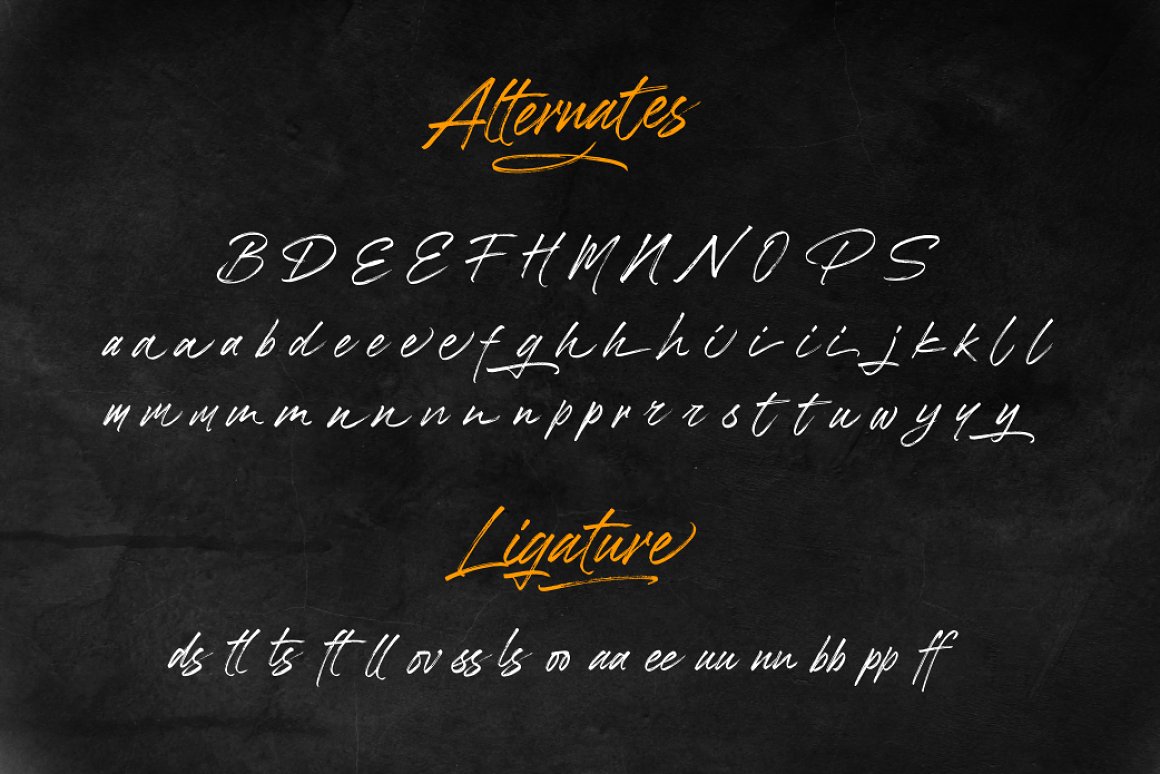 Alternates
B D E E F H M N N O P S
a a a a b d e e e e e f g h h h i i i i j k k l l
m m m m m n n n n n n p p r r r s t t u w y y y
Ligature
ds tl ts ft ll ov ss ls oo aa ee uu nn bb pp ff